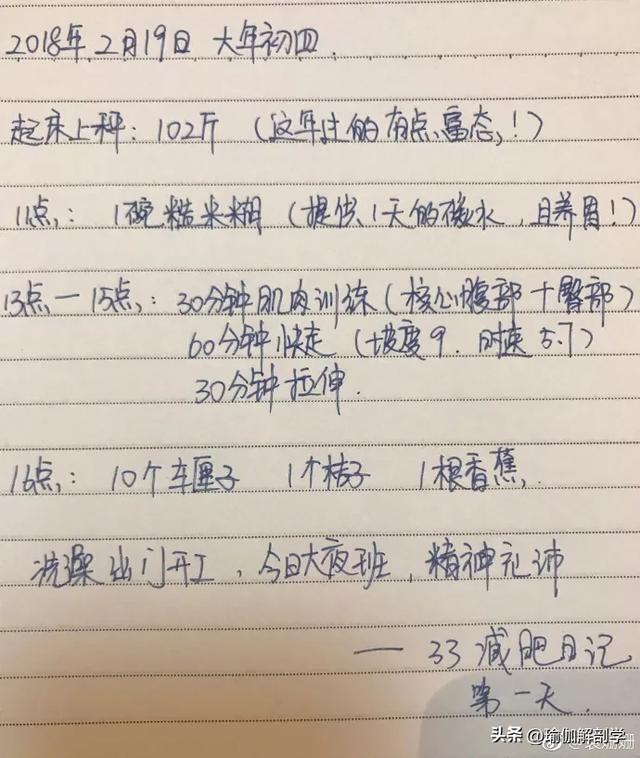 2018年2月19日 大年初四.
起床上秤: 102斤 (这年过的有点富态!)
11点: 1碗糙米糊 (提供1天的碳水, 且养胃!)
13点—15点: 30分钟肌肉训练 (核心腹部+臀部)
60分钟快走 (坡度9. 时速5.7)
30分钟拉伸.
16点: 10个车厘子 1个桔子 1根香蕉.
洗澡出门开工, 今日大夜班, 精神充沛
—33减肥日记
第一天.
头条 @瑜伽解剖学